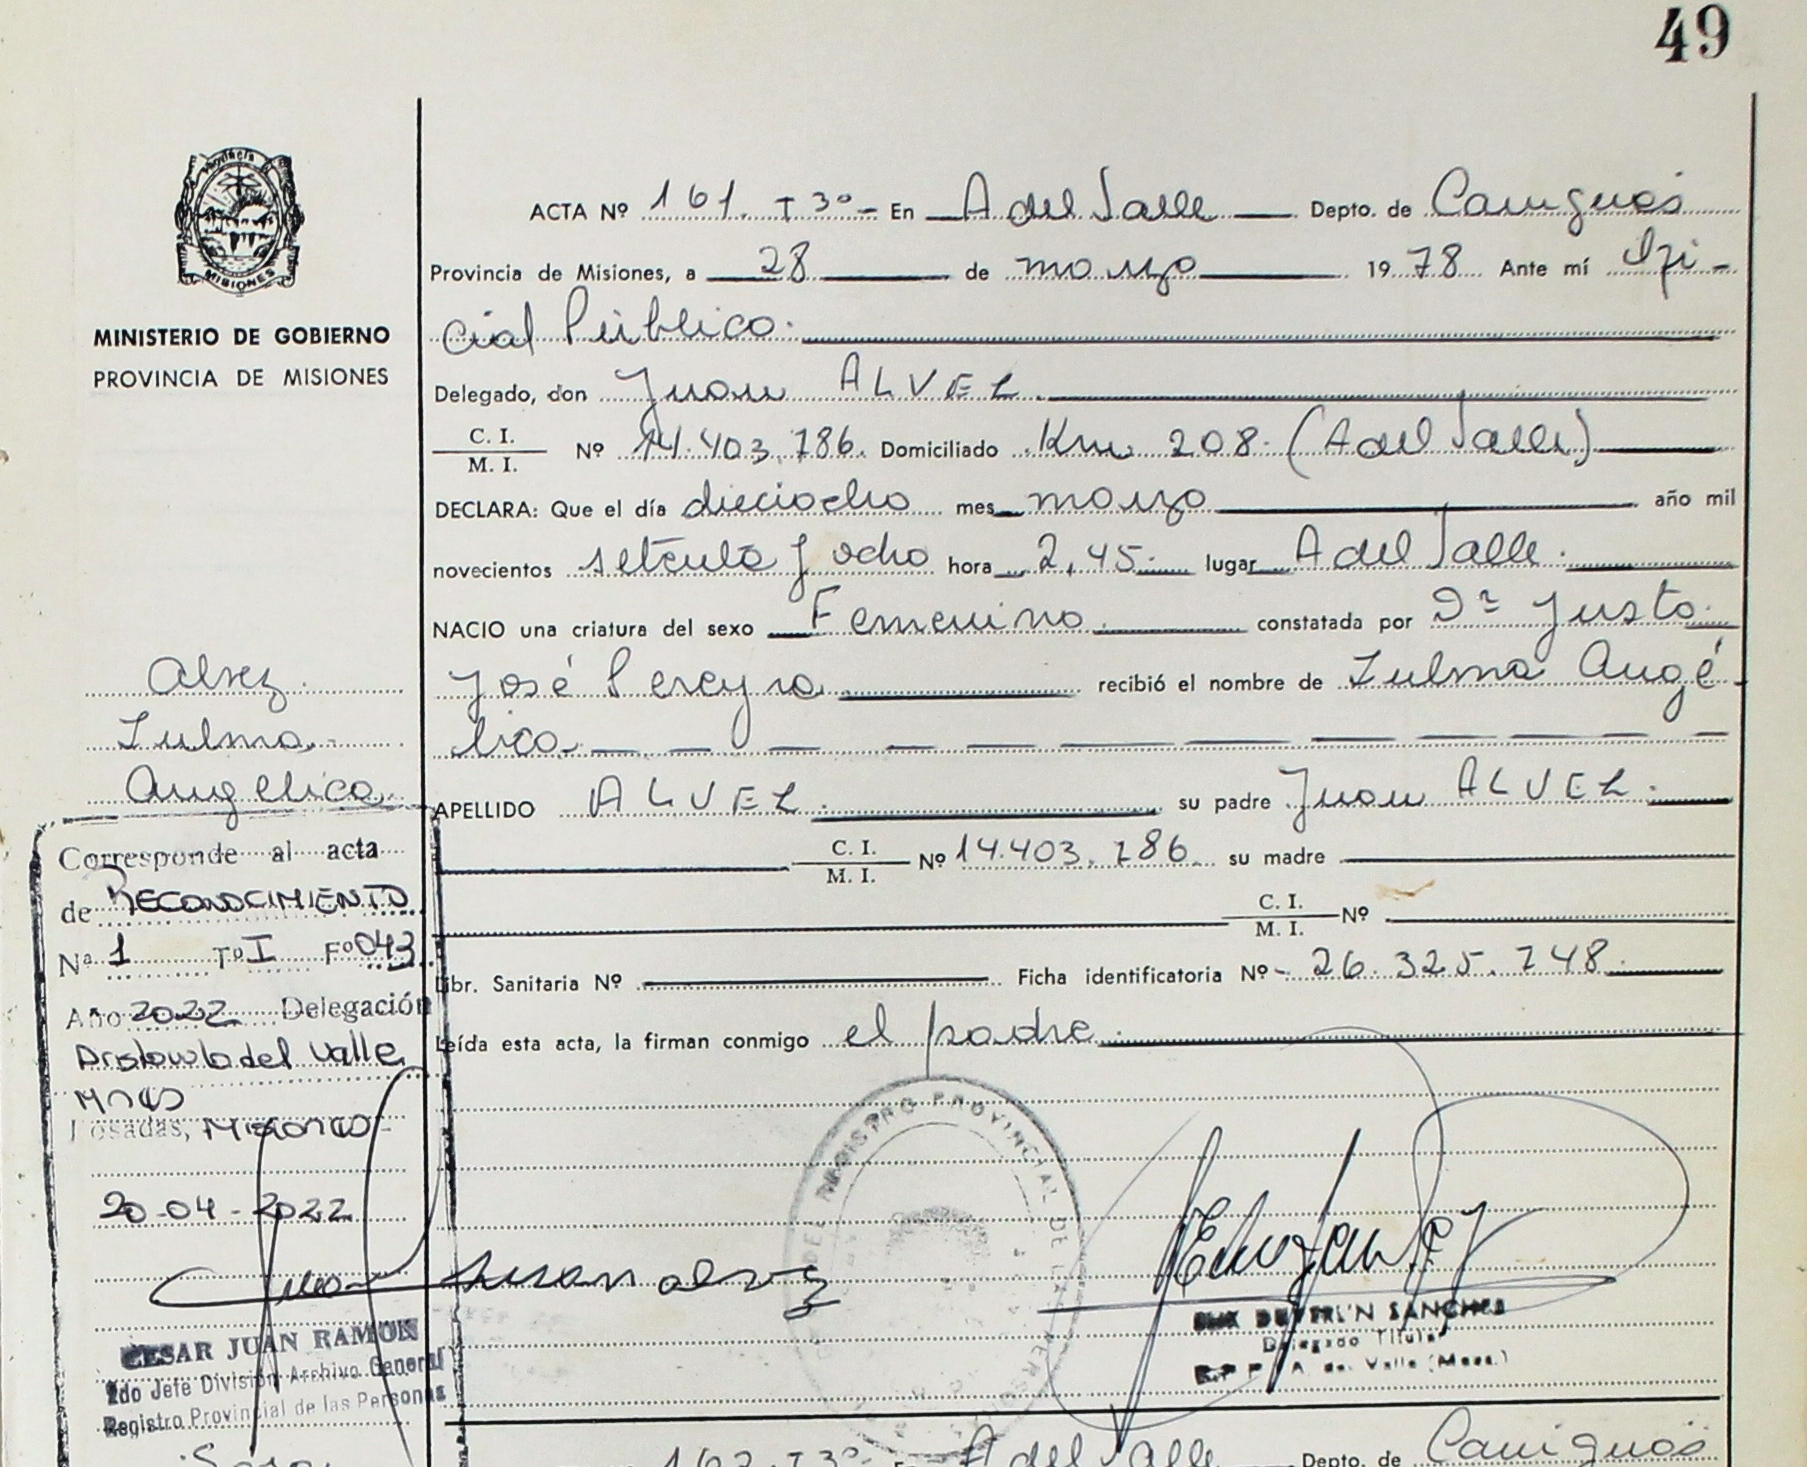 49
Provincia de
MISIONES
MINISTERIO DE GOBIERNO
PROVINCIA DE MISIONES
ACTA Nº 161. T 3º - En A del Valle Depto. de Cainguás
Provincia de Misiones, a 28 de marzo 19 78 Ante mí Ofi-
cial Público.
Delegado, don Juan ALVEZ.
C. I.
M. I. Nº 14.403.786. Domiciliado Km 208. (A del Valle)
DECLARA: Que el día dieciocho mes marzo año mil
novecientos setenta y ocho hora 2,45. lugar A del Valle.
NACIO una criatura del sexo Femenino. constatada por Dr Justo
José Pereyra. recibió el nombre de Zulma Angé-
lica.
APELLIDO ALVEZ. su padre Juan ALVEZ.
C. I.
M. I. Nº 14.403.786. su madre
C. I.
M. I. Nº
Libr. Sanitaria Nº Ficha identificatoria Nº - 26.325.748.
Leída esta acta, la firman conmigo el padre.
Alvez.
Zulma.
Angelica
Corresponde al acta
de RECONOCIMIENTO
Nº 1 Tº I Fº 043
Año 2022 Delegación
Aristobulo del Valle
Posadas, Misiones
20-04-2022
Juan alvez
REGISTRO PROVINCIAL DE LAS PERSONAS
CESAR JUAN RAMON
2do Jefe División Archivo General
Registro Provincial de las Personas
SANCHES
Delegado Titular
R.P.P. A. del Valle (Mnes.)
162. T 3º - En A del Valle Depto. de Cainguás